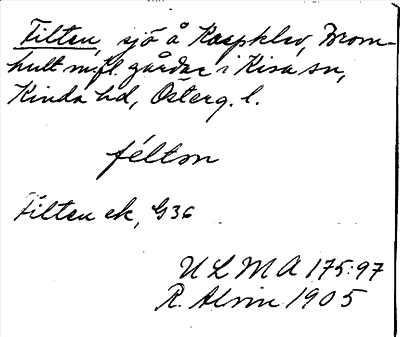 Filten, sjö å Kaspklev, Brom-
hult m.fl. gårdar i Kisa sn,
Kinda hd, Österg. l.
féltɒn
Filten ek, G 36
ULMA 175:97
R. Alvin 1905